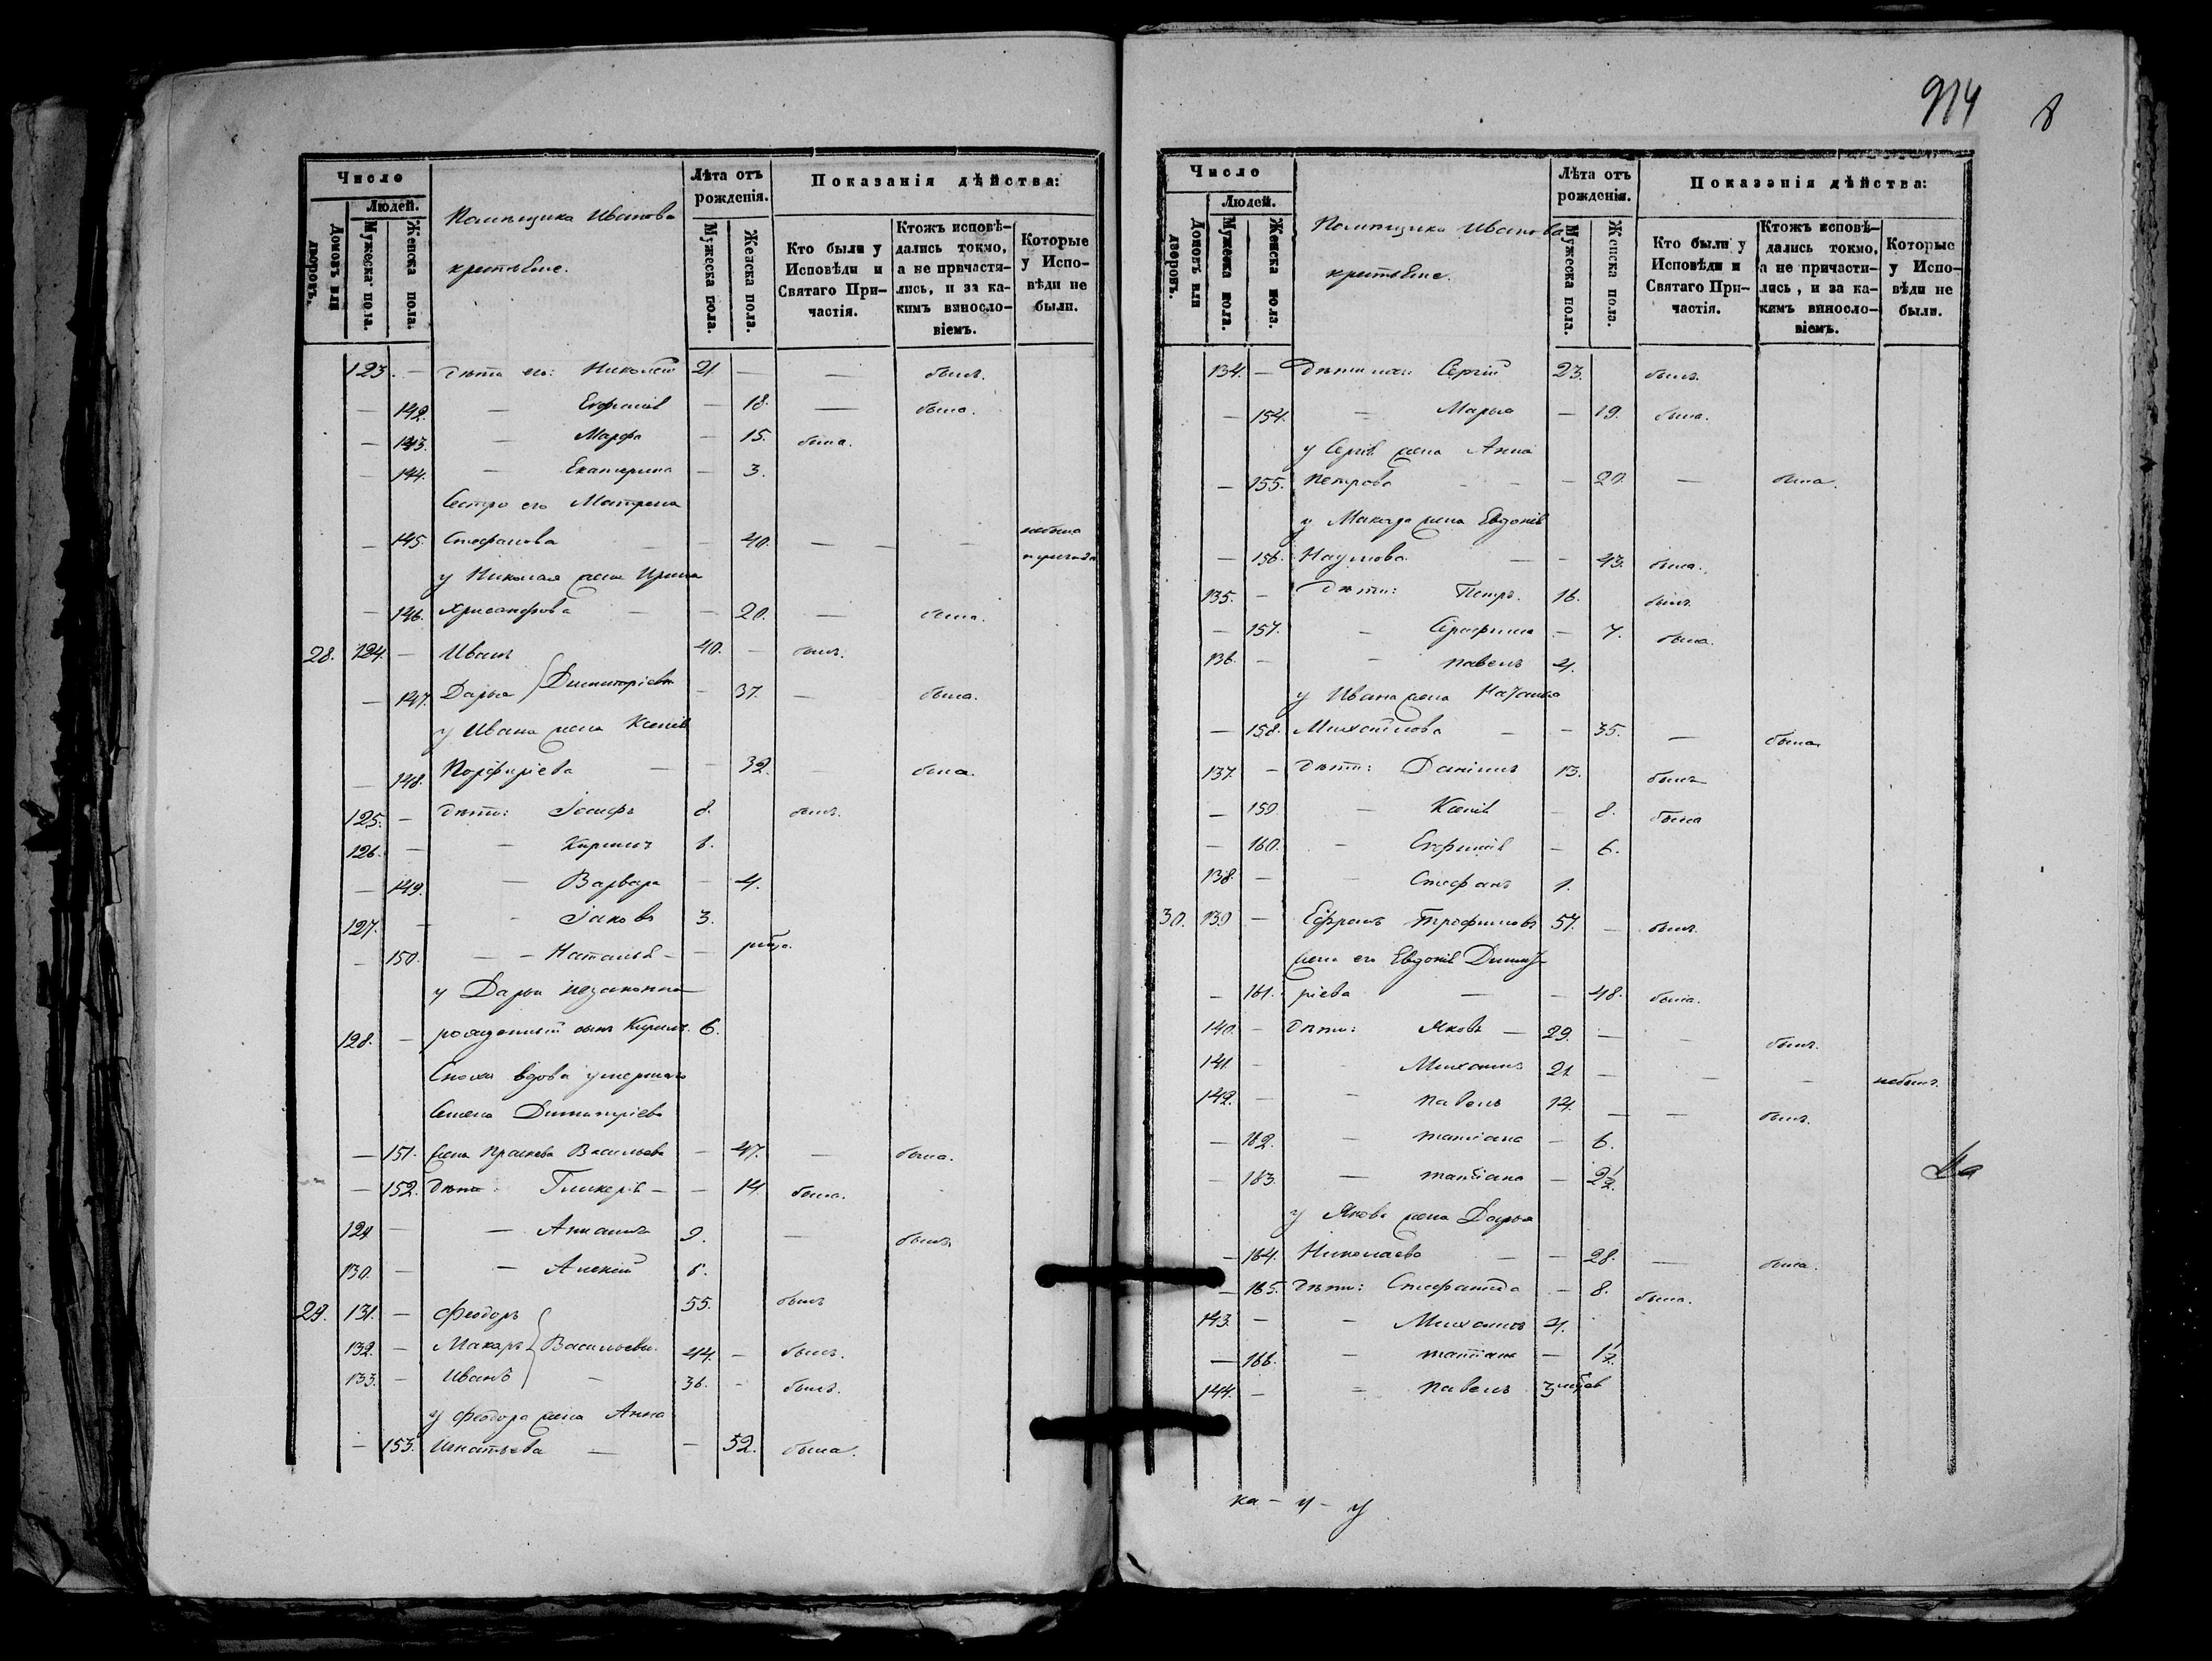 914 8
Число
Людей.
Домовъ или дворовъ.
Мужеска пола.
Женска пола.
Помѣщика Иванова
крестьяне.
Лѣта отъ рожденія.
Мужеска пола.
Женска пола.
Показанія дѣйства:
Кто были у Исповѣди и Святаго Причастія.
Ктожъ исповѣдались токмо, а не причастились, и за какимъ винословіемъ.
Которые у Исповѣди не были.
123. — Дѣти его: Николай 21. — — былъ.
— 142. — Евфимія — 18. — была.
— 143. — Марфа — 15. была.
— 144. — Екатерина — 3.
Сестра его Матрена
— 145. Стефанова — 40. — — небыла
у Николая жена Ирина
— 146. Хрисанфова — — 20. — была.
28. 124. — Иванъ 40. — былъ.
— 147. Дарья Димитріевы — 37. — была.
у Ивана жена Ксенія
— 148. Порфиріева — — 32. — была.
125. — Дѣти: Іосифъ 8. былъ.
126. — — Кирилъ 6.
— 149. — Варвара — 4.
127. — - Іаковъ 3.
— 150. — - Наталья — —
у Дарьи незаконно
128. — рожденный сынъ Кирилъ 6.
Сноха вдова умершаго
Семена Димитріева
— 151. жена Прасковья Васильева — 47. — была.
— 152. Дѣти: Гликерія — — 14. была.
129 — — Ананія 9. — былъ
130. — — Алексій 6.
29. 131. — Феодоръ 55. былъ
132. — Макаръ Васильевы 44. — былъ.
133. — Иванъ — 36. - былъ.
у Феодора жена Анна
— 153. Игнатьева — — 52. была.
Число
Людей.
Домовъ или дворовъ.
Мужеска пола.
Женска пола.
Помѣщика Иванова
крестьяне.
Лѣта отъ рожденія.
Мужеска пола.
Женска пола.
Показанія дѣйства:
Кто были у Исповѣди и Святаго Причастія.
Ктожъ исповѣдались токмо, а не причастились, и за какимъ винословіемъ.
Которые у Исповѣди не были.
134. — Дѣти Сергій 23. былъ.
— 154. — Марья — 19. была.
у Сергія жена Анна
— 155. Петрова - - — 20. — была.
у Макара жена Евдокія
— 156. Наумова — - 43. была.
135. — Дѣти: Петръ. 16. былъ.
— 157. - Серафима — 7. была.
136. — - Павелъ 4.
у Ивана жена Наталья
— 158. Михайлова — - 35. — была
137. — Дѣти: Даніилъ 13. былъ
— 159. — Ксенія — 8. была
— 160. - Евфимія — 6.
138. — — Стефанъ 1.
30. 139 — Ефремъ Трофимовъ 57. — былъ.
жена его Евдокія Димит
— 161. ріева — — 48. была.
140. — Дѣти: Яковъ — 29. — - былъ.
141. - - Михаилъ 21. — - - небылъ.
142. - - Павелъ 14. — — былъ.
— 162. - Татіана — 6.
— 163. — Татіана — 2½.
у Якова жена Дарья
— 164. Николаева — — 28. — была.
— 165. Дѣти: Стефанида — 8. была.
143. — - Михаилъ 4.
— 166. - Татіана — 1½.
144. — - Павелъ
ка - у - у